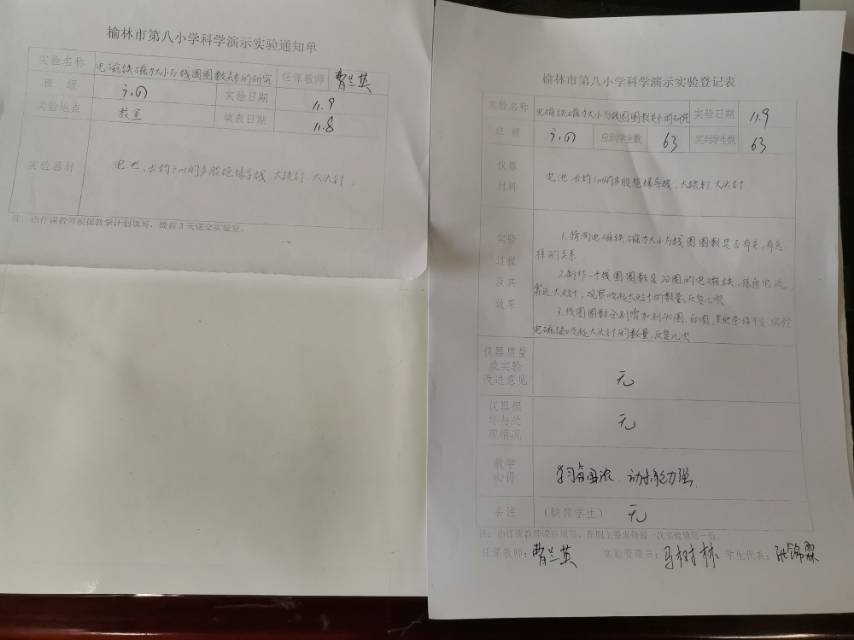 榆林市第八小学科学演示实验通知单
实验名称 电磁铁磁力大小与线圈圈数关系的研究 任课教师 曹兰英
班级 实验日期 11.9
实验地点 教室 填表日期 11.8
实验器材 电池、长约 的多股绝缘导线、大铁钉 大头针
注:由任课教师根据教学计划填写,提前3天送交实验室。
榆林市第八小学科学演示实验登记表
实验名称 电磁铁磁力大小与线圈圈数关系的研究 实验日期 11.9
班级 应到学生数 63 实到学生数 63
仪器
材料
电池、长约 的多股绝缘导线、大铁钉 大头针
实验
过程
及其
效果
1.猜测电磁铁磁力大小与线圈圈数是否有关,有怎
样的关系
2.制作一个线圈圈数是20圈的电磁铁,接通电流,
靠近大头针,观察吸起大头针的数量,反复几次
3.线圈圈数分别增加到 圈、 圈,其他条件不变,
电磁铁吸起大头针的数量,反复几次
仪器质量
或实验
改进意见
无
仪器损
坏与处
理情况
无
教学
心得
学习氛围浓、动手能力强
备注 (缺席学生) 无
任课教师:曹兰英 实验管理员:马树林 学生代表:张锦霖